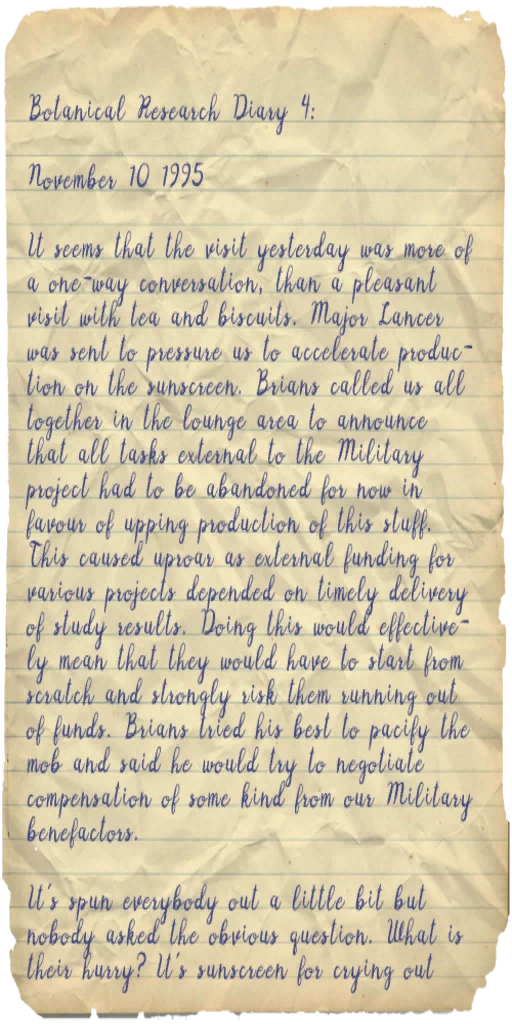 Botanical Research Diary 4:
November 10 1995
It seems that the visit yesterday was more of
a one-way conversation, than a pleasant
visit with tea and biscuits. Major Lancer
was sent to pressure us to accelerate produc-
tion on the sunscreen. Brians called us all
together in the lounge area to announce
that all tasks external to the Military
project had to be abandoned for now in
favour of upping production of this stuff.
This caused uproar as external funding for
various projects depended on timely delivery
of study results. Doing this would effective-
ly mean that they would have to start from
scratch and strongly risk them running out
of funds. Brians tried his best to pacify the
mob and said he would try to negotiate
compensation of some kind from our Military
benefactors.
It's spun everybody out a little bit but
nobody asked the obvious question. What is
their hurry? It's sunscreen for crying out